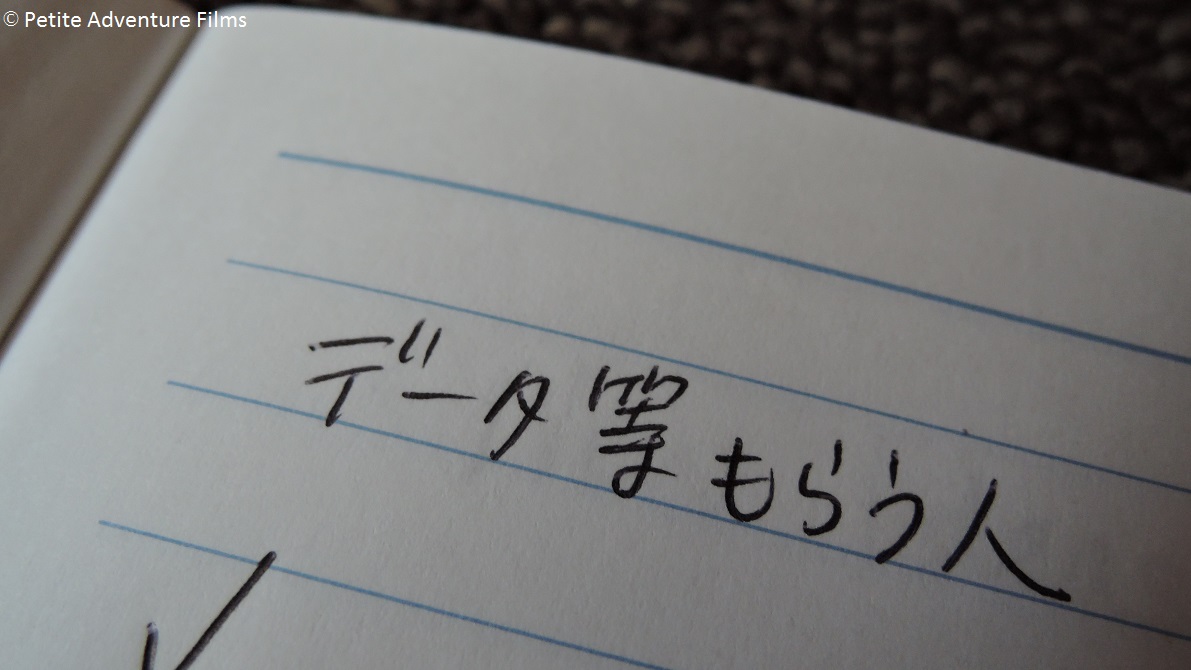 © Petite Adventure Films
データ等もらう人